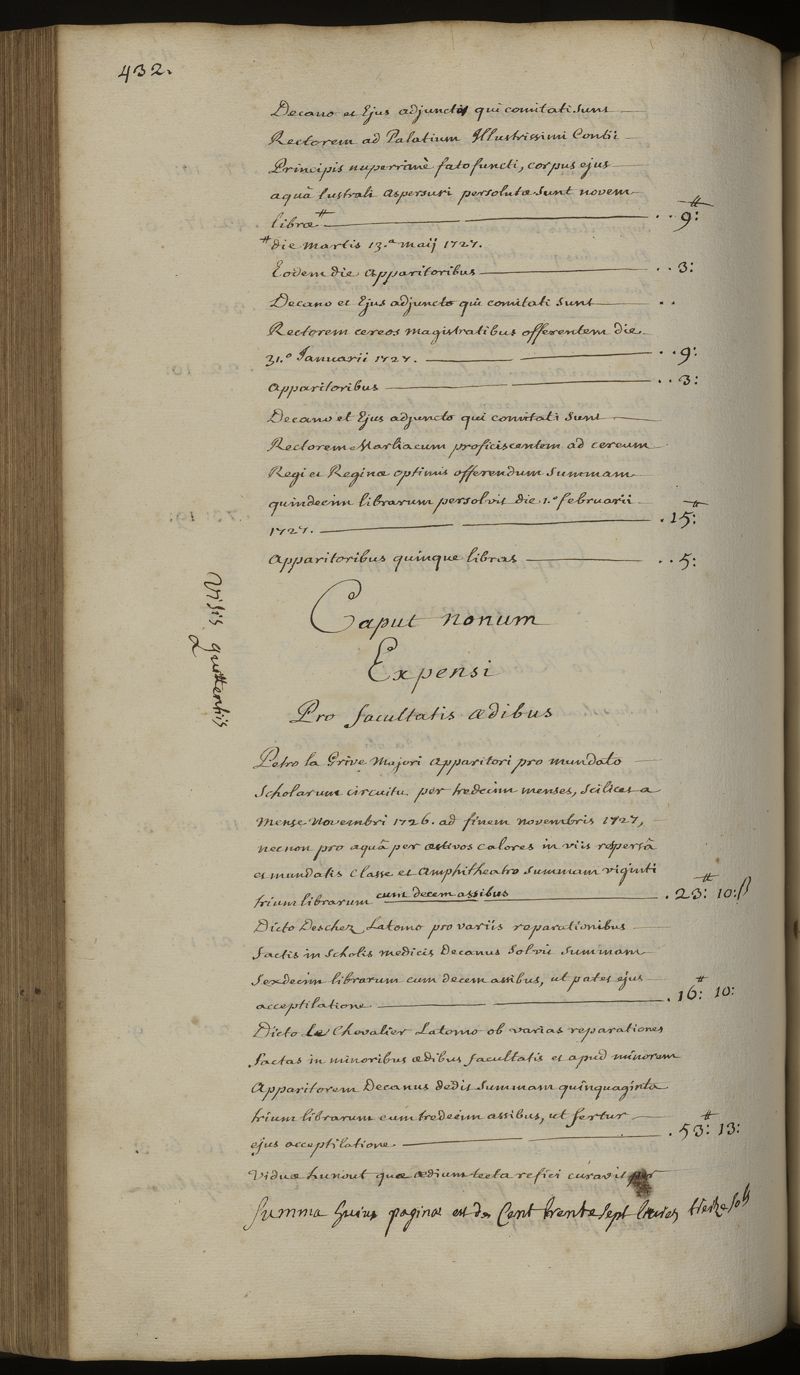 432.
Decano et Ejus adjuncto qui comitati sunt
Rectorem ad Palatium Illustrissimi Contii
Principis nuperrimè fato functi, corpus ejus
aquâ lustrali aspersuri persolutæ sunt novem
libræ # . . 9 #:
# die martis 13.a maij 1727.
Eodem die apparitoribus . . 3:
Decano et Ejus adjuncto qui comitati sunt . .
Rectorem cereos magistratibus offerentem die
31.o Januarii 1727. . . 9:
apparitoribus . . 3:
Decano et Ejus adjuncto qui comitati sunt
Rectorem Marliacum proficiscentem ad cereum
Regi et Reginæ optimis offerendum summam
quindecim librarum persolvit die 1.o februarii
1727. . 15 #:
apparitoribus quinque libras . . 5:
Visis quittentiis
Caput nonum
Expensi
Pro facultatis ædibus
Petro la Grive Majori apparitori pro mundato
Scholarum circuitu per tredecim menses, scilicet a
Mense Novembri 1726. ad finem novembris 1727,
necnon pro aquâ per æstivos calores in viis respersâ
et mundatis Classe et Amphitheatro summam viginti
trium librarum cum decem assibus . 23 #: 10: ſ
Dicto Deschez Latomo pro variis reparationibus
factis in scholis medicis Decanus solvit summam
sexdecim librarum cum decem assibus, ut patet ejus
acceptilatione . 16 #: 10:
Dicto le Chevalier Latomo ob varias reparationes
factas in minoribus ædibus facultatis et apud minorem
Apparitorem Decanus dedit summam quinquaginta
trium librarum cum tredecim assibus, ut fertur
ejus acceptilatione . 53 #: 13:
Viduæ hunout quæ ædium tecta refici curavit per
Summa huius paginæ est de Cent trente sept livres treize sols